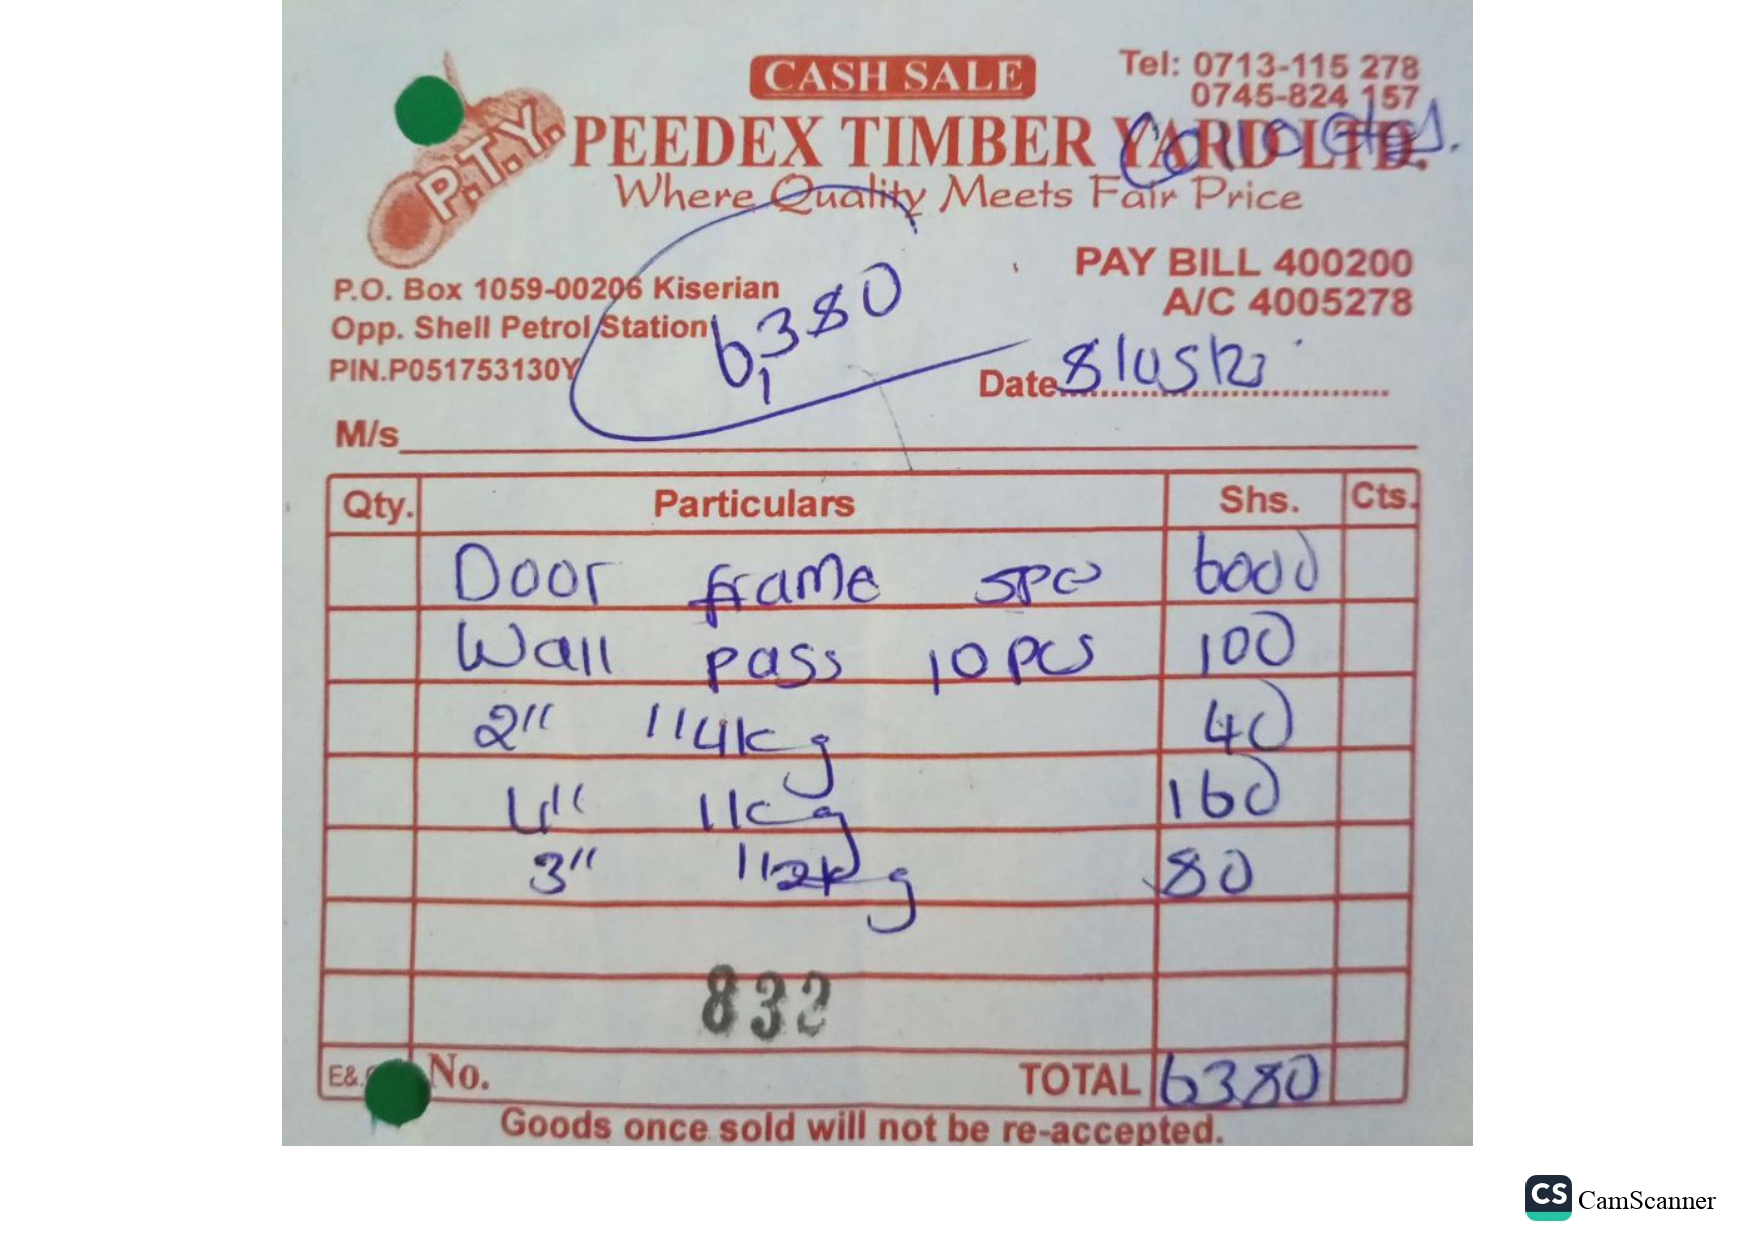 CASH SALE
Tel: 0713-115 278
0745-824 157
P.T.Y.
PEEDEX TIMBER YARD LTD.
Where Quality Meets Fair Price
6,380
PAY BILL 400200
A/C 4005278
P.O. Box 1059-00206 Kiserian
Opp. Shell Petrol Station
PIN.P051753130Y
Date 8/05/23
M/s
Qty. Particulars Shs. Cts.
Door frame 5pcs 6000
Wall pass 10 pcs 100
2" 1/4kg 40
4" 1kg 160
3" 1/2kg 80
832
E&. No. TOTAL 6380
Goods once sold will not be re-accepted.
CS CamScanner